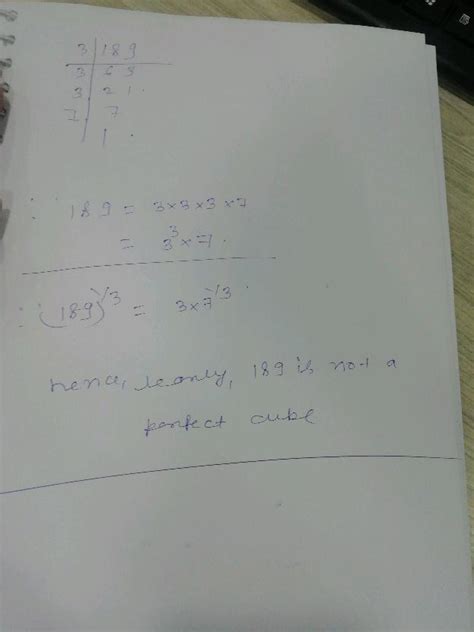 3 | 189
3 | 63
3 | 21.
7 | 7
1.
∴ 189 = 3×3×3×7
= 3³×7.
∴ (189)^1/3 = 3×7^1/3.
hence, 189 is not a
perfect cube